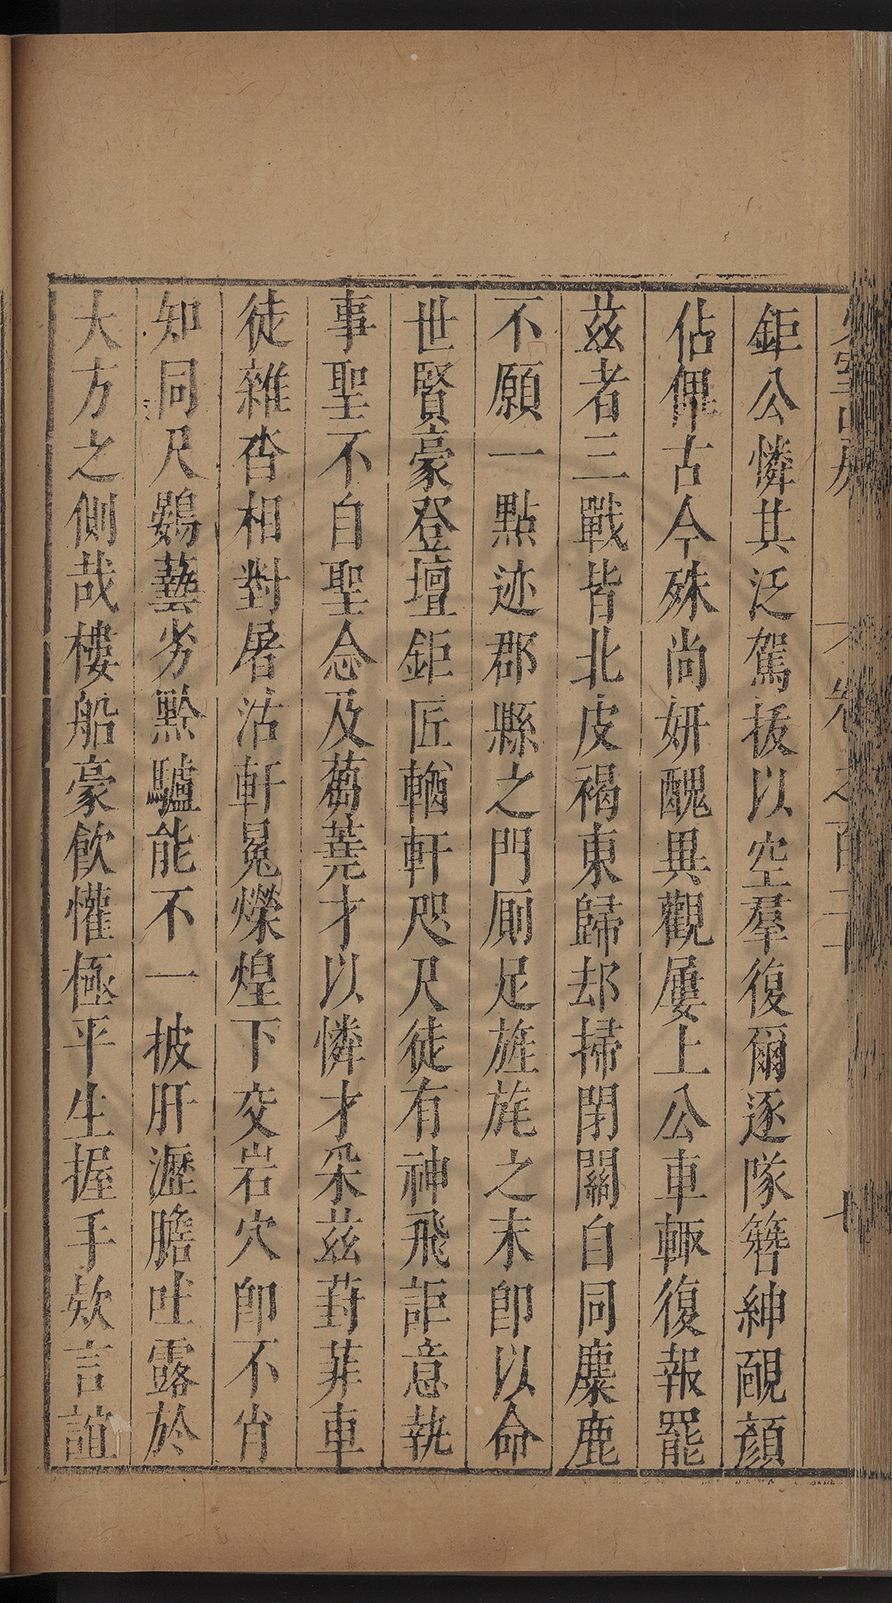 鉅公憐其泛駕拔以空羣復爾逐隊簪紳靦顔
佔俾古今殊尚妍醜異觀屢上公車輒復報罷
茲者三戰皆北皮褐東歸却掃閉關自同麋鹿
不願一點迹郡縣之門厠足旌旄之末卽以命
世賢豪登壇鉅匠輶軒咫尺徒有神飛詎意執
事聖不自聖念及蒭蕘才以憐才采茲葑菲車
徒雜沓相對屠沽軒冕燦煌下交岩穴卽不肖
知同尺鷃藝劣黔驢能不一披肝瀝膽吐露於
大方之側哉樓船豪飮懽極平生握手欬言誼